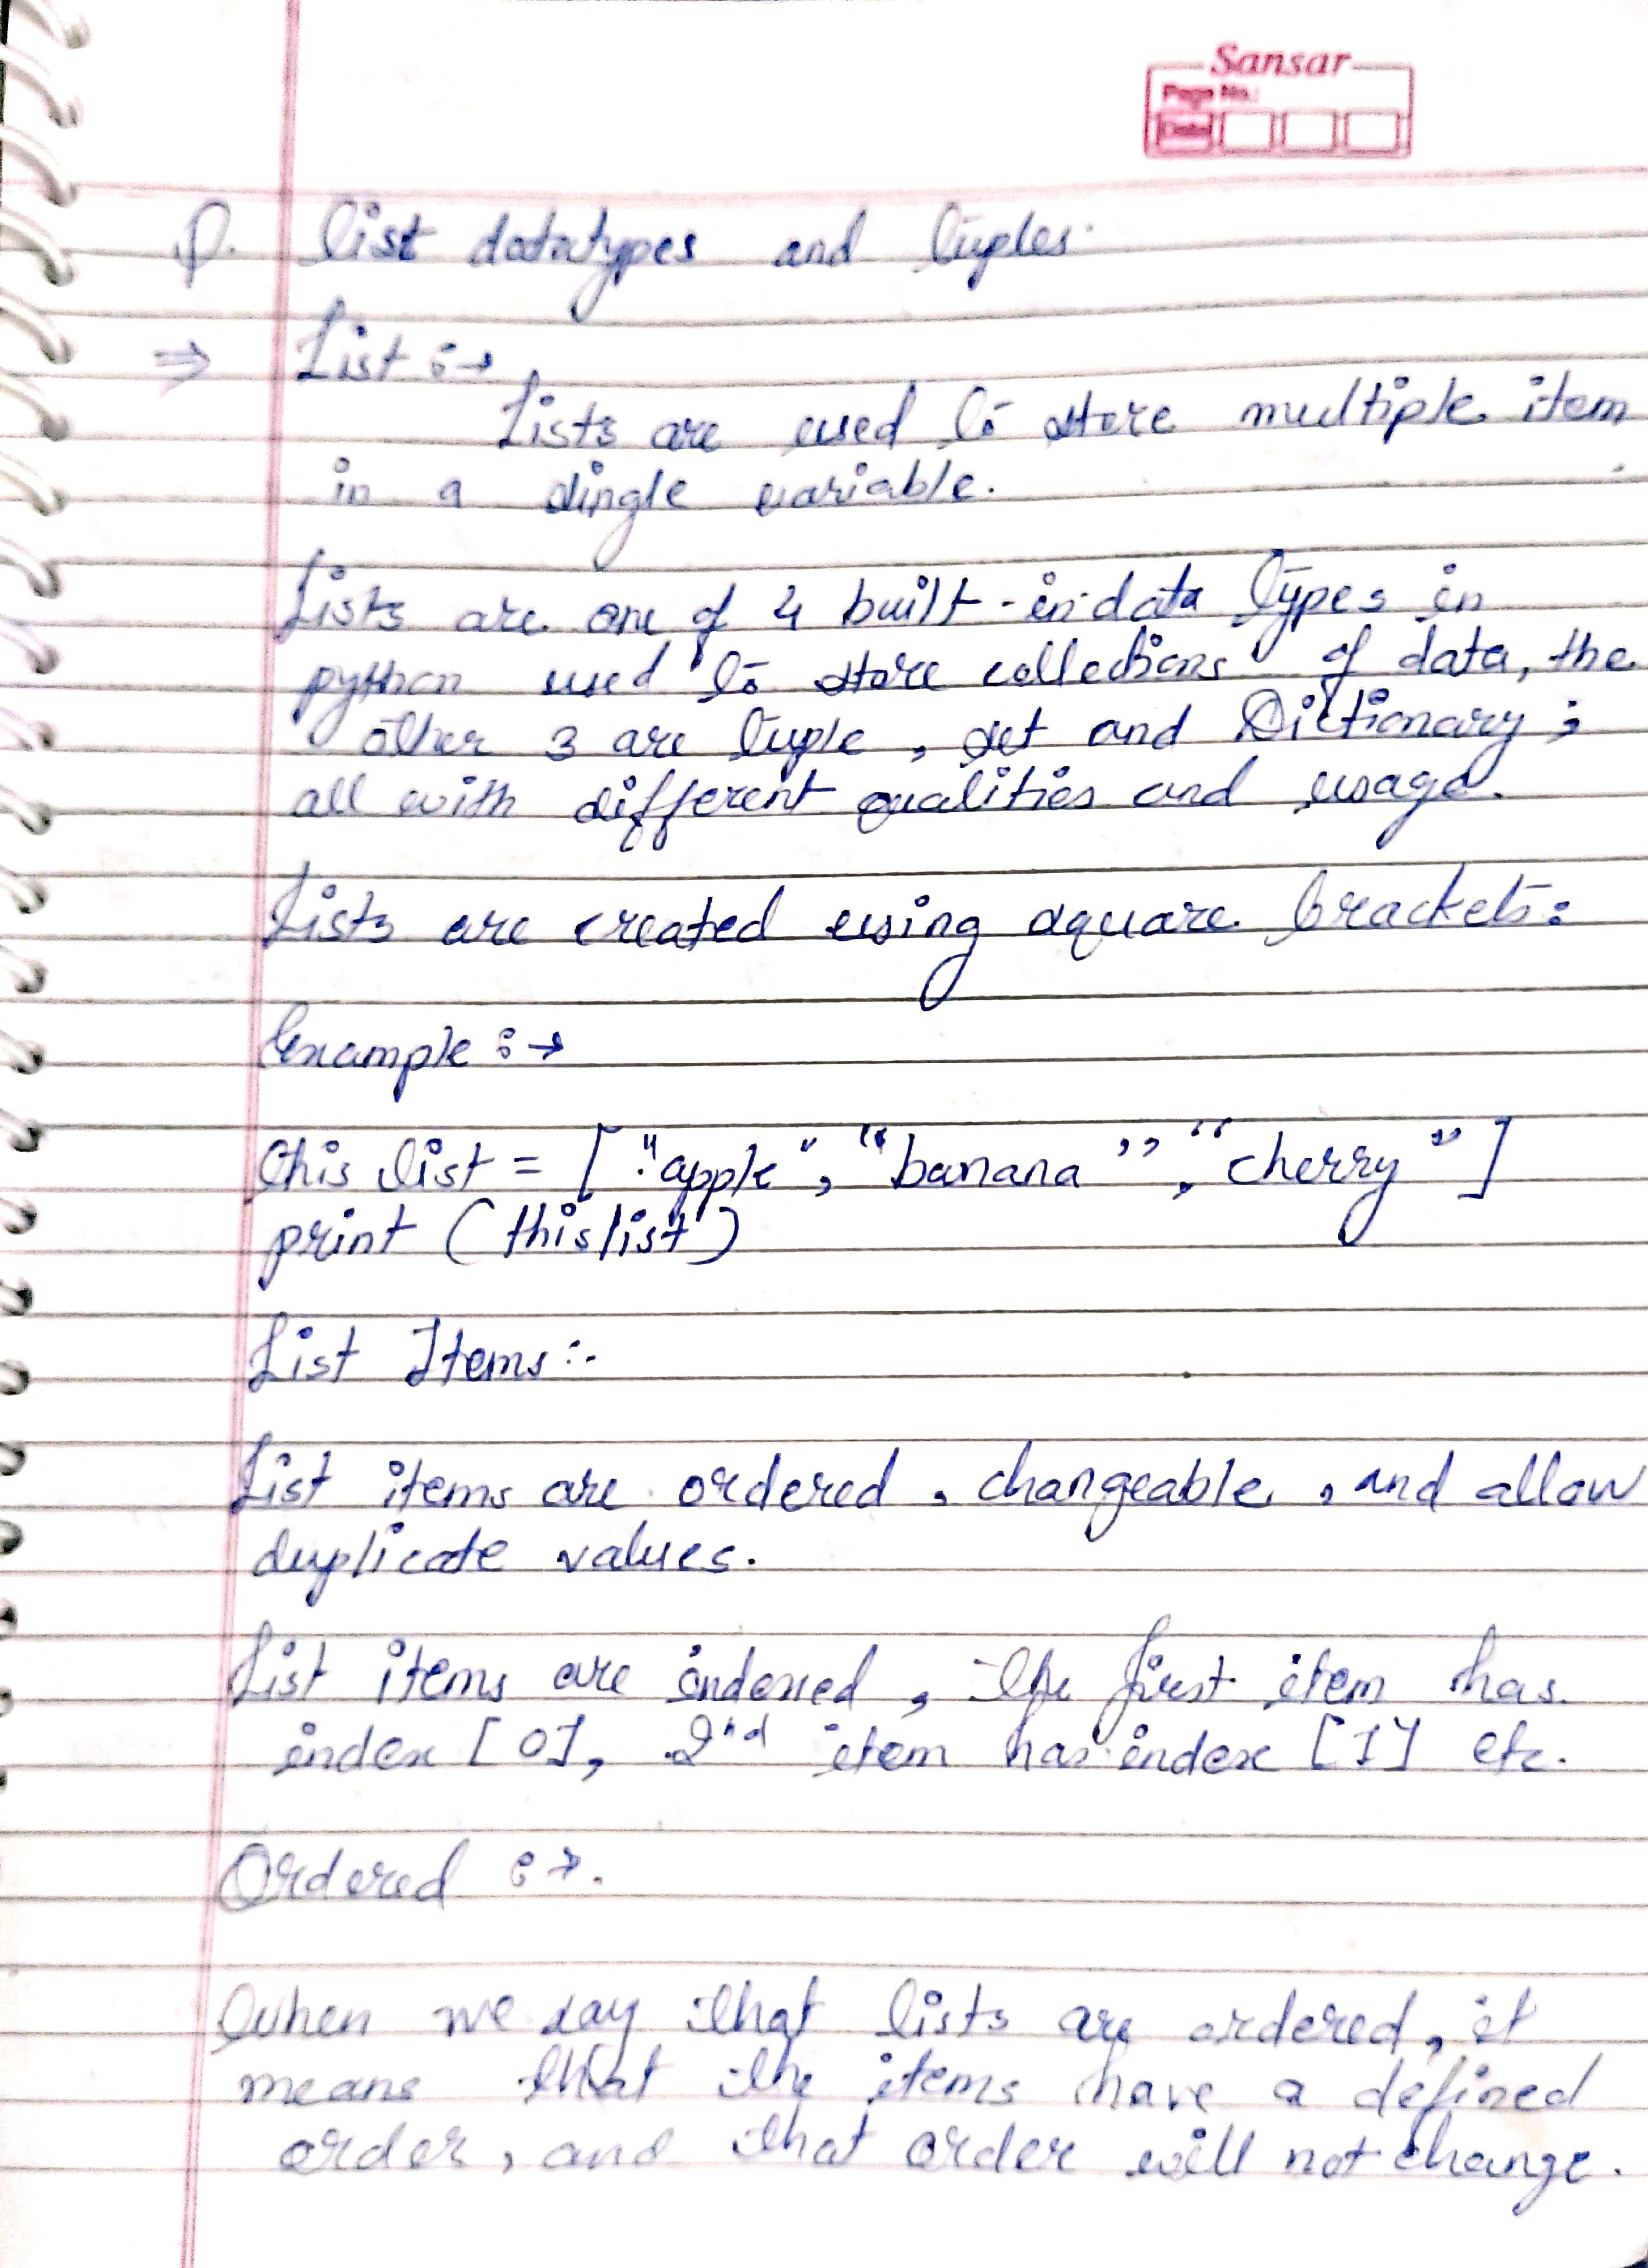 Sansar
Page No.:
Date
Q. List datatypes and tuples.
⇒ List :→
Lists are used to store multiple item
in a single variable.
Lists are one of 4 built-in data types in
python used to store collections of data, the
other 3 are tuple, set and Dictionary;
all with different qualities and usage.
Lists are created using square brackets:
Example :→
this list = ["apple", "banana", "cherry"]
print (thislist)
List Items :-
List items are ordered, changeable, and allow
duplicate values.
List items are indexed, the first item has
index [0], 2nd item has index [1] etc.
Ordered :→.
When we say that lists are ordered, it
means that the items have a defined
order, and that order will not change.